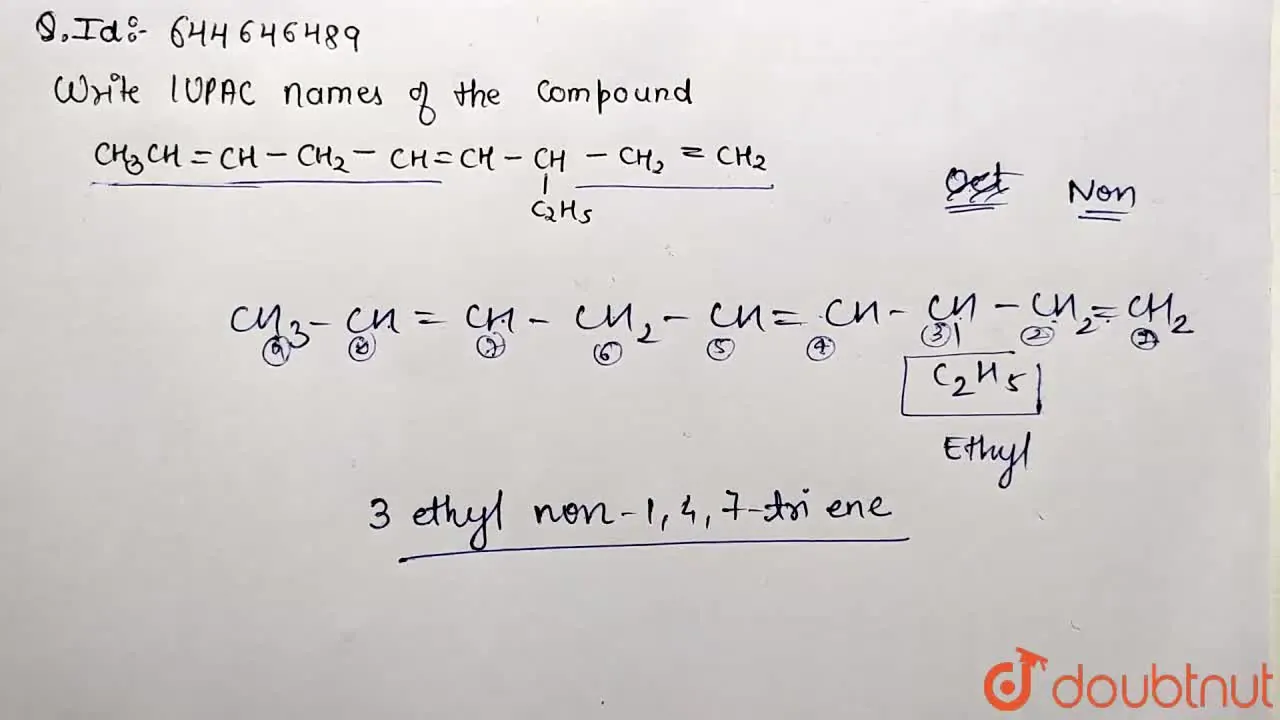 Q.Id:- 644646489
Write IUPAC names of the compound
CH3CH=CH-CH2-CH=CH-CH-CH2=CH2
C2H5
Oct Non
CH3-CH=CH-CH2-CH=CH-CH-CH2=CH2
9 8 7 6 5 4 3 2 1
C2H5
Ethyl
3 ethyl non-1,4,7-tri ene
doubtnut